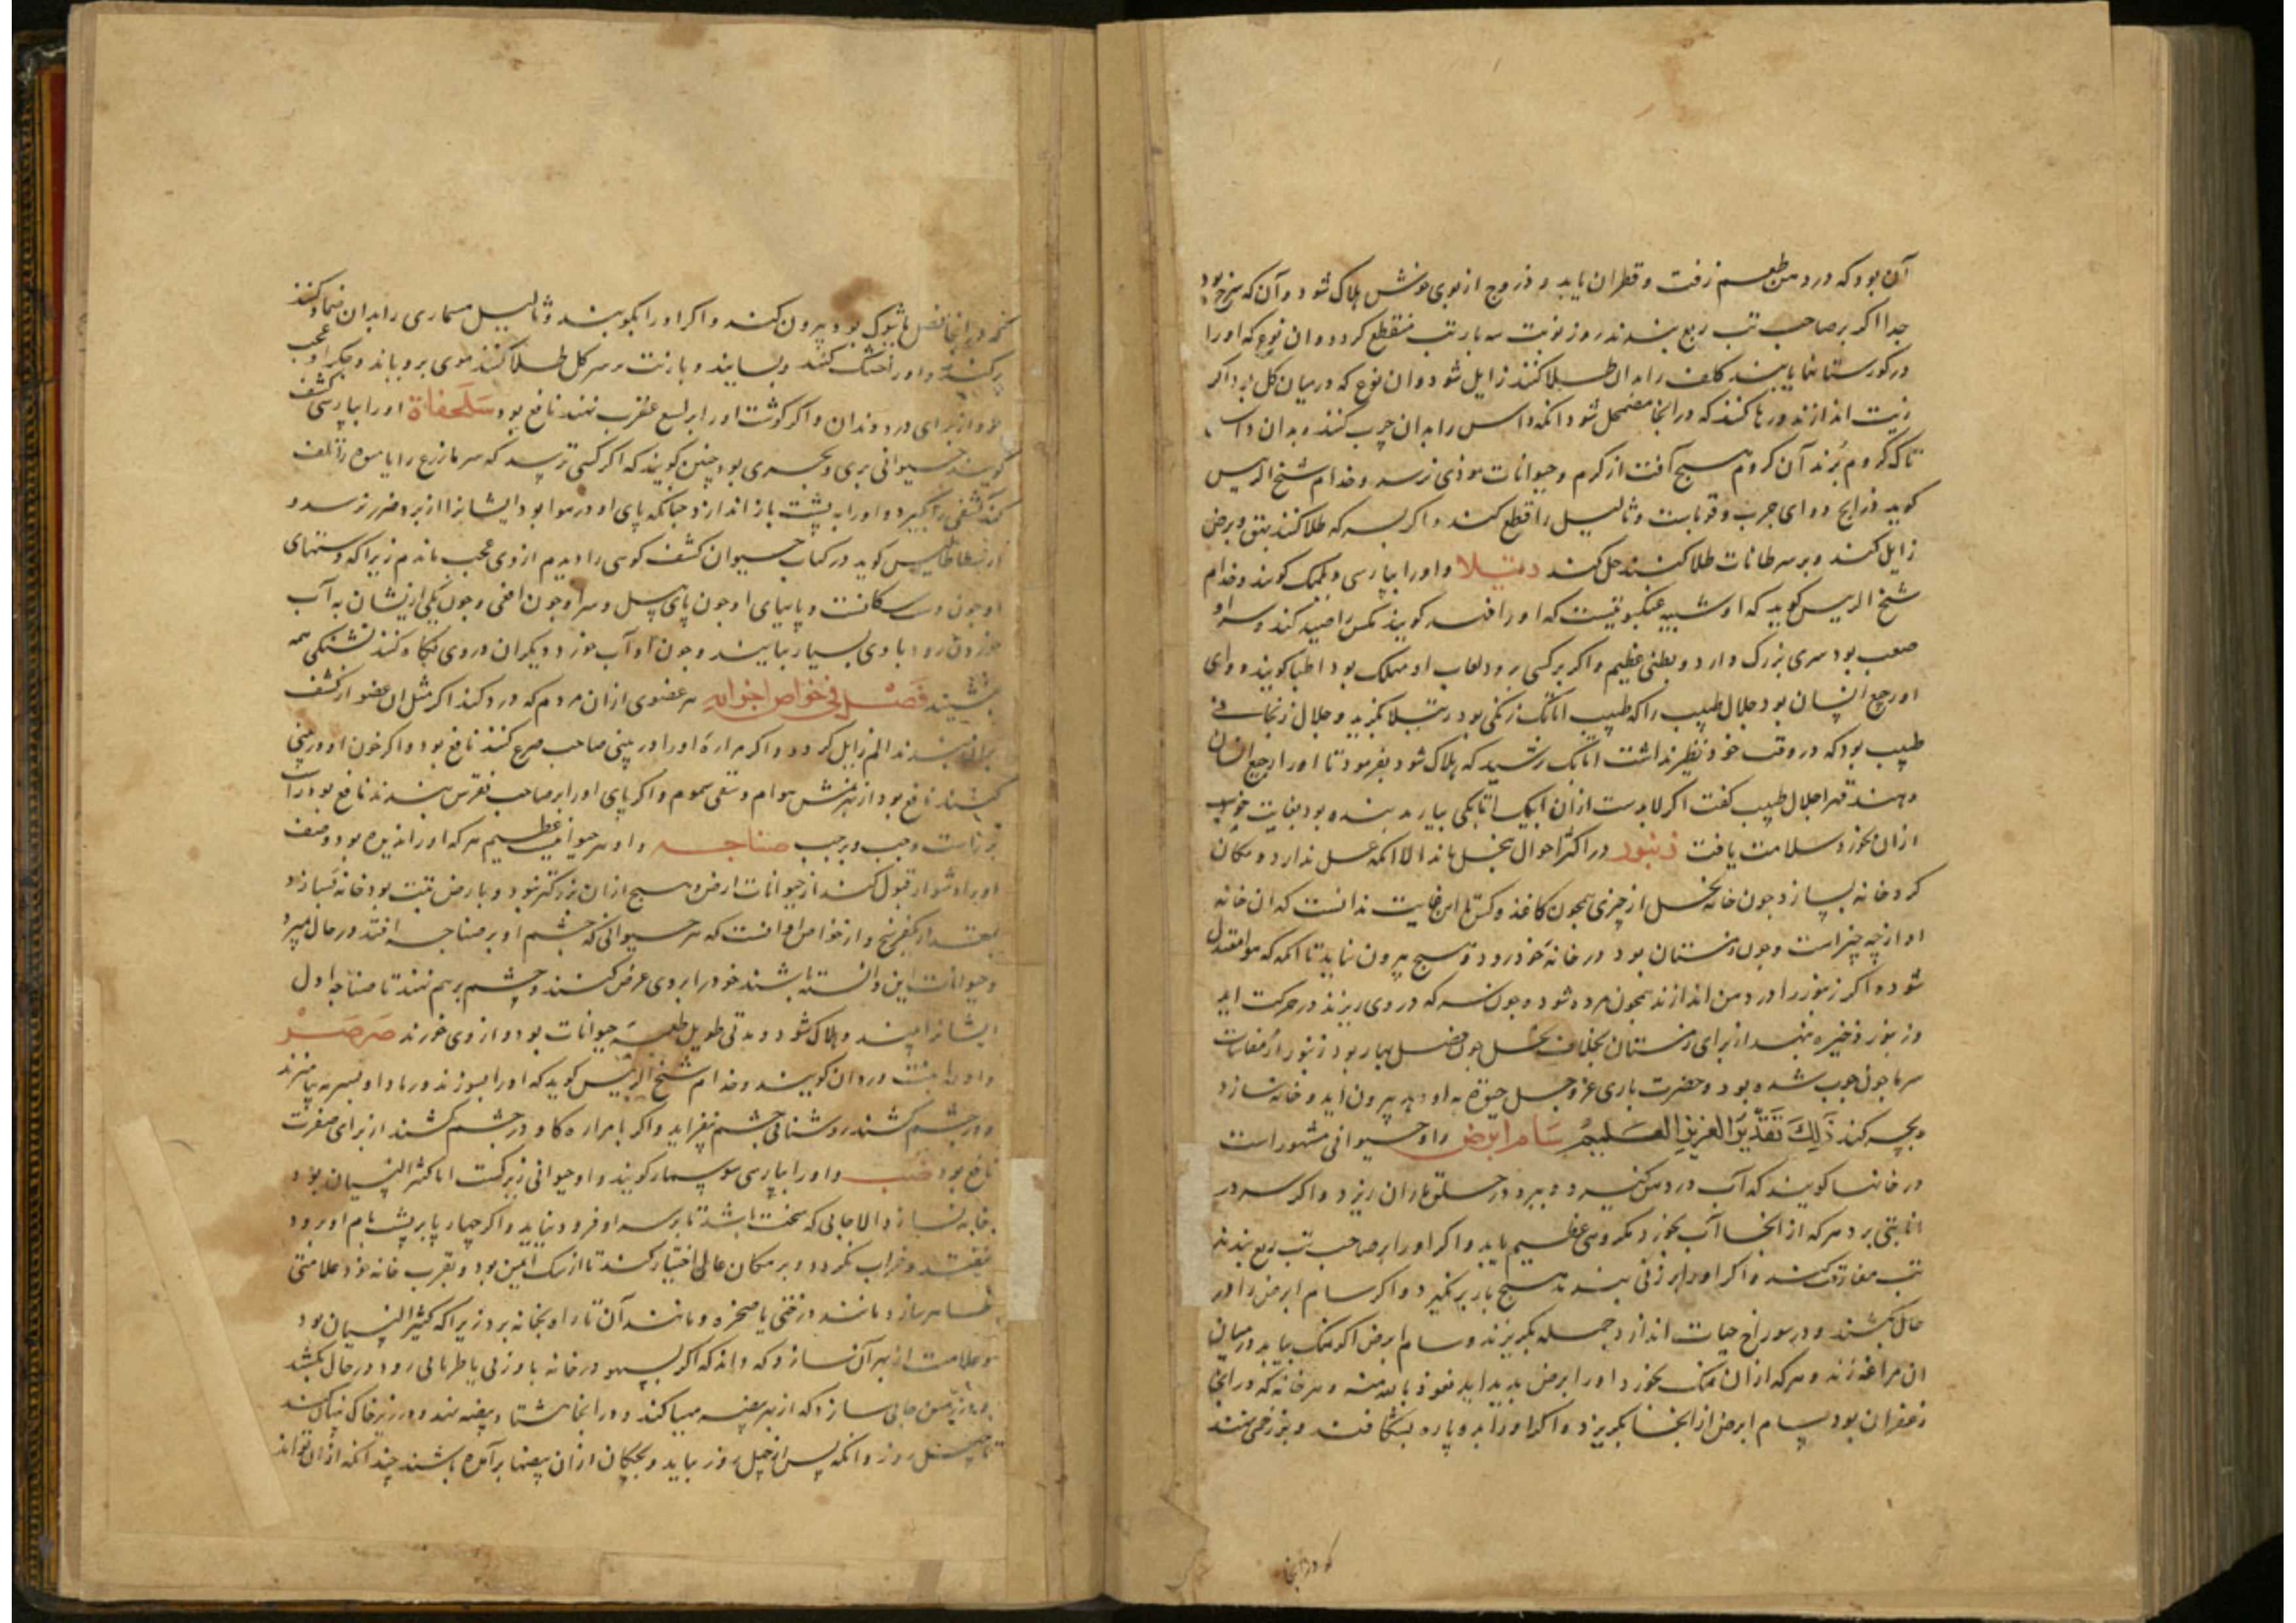 آن بود که در دهن طعم زفت و قطران یابد و ذروح از بوی خوش هلاک شود و آن که سرخ بود
جدا اکر بر صاحب تب ربع بندند روز نوبت سه بار تب منقطع کردد و ان نوع که اورا
در کورستانها یابند کلف را بدان طلا کنند زایل شود و ان نوع که در میان کل بود اکر
زیت اندازند و رها کنند که در انجا مضمحل شود انکه داس را بدان چرب کنند و بدان داس
تاک کروم برند آن کروم هیچ آفت از کرم و حیوانات موذی نرسد و خدام شیخ الریس
کوید ذرایح دوای جرب و قوباست و ثالیل را قطع کند و اکر بسرکه طلا کنند بهق و برص
زایل کند و بر سرطانات طلا کنند حل کند رتیلا و اورا بپارسی کویند و خدام
شیخ الریس کوید که او شبیه عنکبوتیست که اورا فهد کویند مکس را صید کند و سر او
صعب بود سری بزرک دارد و بطنی عظیم و اکر بر کسی رود لعاب او مهلک بود اطبا کویند دوای
او رجیع انسان بود جلال طبیب را که طبیب اتابک زنکی بود رتیلا بکزید و جلال زنجانی
طبیب بود که در وقت خود نظیر نداشت اتابک ترسید که هلاک شود بفرمود تا اورا رجیع انسان
دهند قهرا جلال طبیب کفت اکر لابدست از ان ایبک اتابکی بیارید بنده بود بغایت خوب
از ان بخورد و سلامت یافت زنبور در اکثر احوال بنحل ماند الا انکه عسل ندارد و مکان
کرد خانه بسازد چون خانه نحل از چیزی همچون کاغذ و کس تا این غایت ندانست که ان خانه
او از چه چیز است و چون زمستان بود در خانه خود رود و هیچ بیرون نیاید تا انکه که هوا معتدل
شود و اکر زنبور را در دهن اندازند همچون مرده شود و چون سرکه در وی ریزند در حرکت اید
و زنبور ذخیره ننهد از برای زمستان بخلاف نحل چون فصل بهار بود زنبور از مقاسات
سرما چون چوب شده بود و حضرت باری عز و جل حیوة به او دهد بیرون اید و خانه سازد
و بچه کند ذَلِكَ تَقْدِيرُ الْعَزِيزِ الْعَلِيمُ سام ابرص و او حیوانی مشهور است
در خانها کویند که آب در دهن کیرد و ببرد و در حلق ماران ریزد و اکر سر در
انا بتی برد هر که از انجا آب بخورد مکروهی عظیم یابد و اکر اورا بر صاحب تب ربع بندند
تب مفارقت کند و اکر اورا بر زنی بندند هیچ بار بر نکیرد و اکر سام ابرص را در
حال بکشند و در سوراخ حیات اندازند جمله بکریزند و سام ابرص اکر نمک بیابد در میان
ان مراغه زند و هر که از ان نمک بخورد اورا برص پدید اید نعوذ بالله منه و هر خانه که در انجا
زعفران بود سام ابرص از انجا بکریزد و اکر اورا بدو پاره بشکافند و بر زخمی نهند
که در انجا
که در انجا نصل یا شوک بود بیرون کند و اکر اورا بکوبند و ثالیل مسماری را بدان ضماد کنند
برکند و اورا خشک کنند و بسایند و با زیت بر سر کل طلا کنند موی برویاند و جکر او عجب
بود از برای درد دندان و اکر کوشت اورا بر لسع عقرب نهند نافع بود سلحفاة اورا بپارسی کشف
کویند حیوانی بری و بحری بود چنین کویند که اکر کسی ترسد که سرما زرع را یا میوه را تلف
کند کشفی را بکیرد و اورا به پشت باز اندازد چنانکه پای او در هوا بود ایشانرا از برد ضرر نرسد و
ارسطاطالیس کوید در کتاب حیوان کشف کوهی را دیدم از وی عجب ماندم زیرا که دستهای
او چون دست سکانست و پایهای او چون پای پیل و سر او چون افعی و چون یکی از ایشان به آب
خوردن رود با وی بسیار بیایند و چون او آب خورد دیکران در وی نکاه کنند تشنکی همه
بنشیند فصل فی خواص اجزایه هر عضوی از ان مردم که درد کند اکر مثل ان عضو از کشف
بران بندند الم زایل کردد و اکر مراره اورا در بینی صاحب صرع کنند نافع بود و اکر خون او در بینی
کنند نافع بود از بهر نهش هوام و سقی سموم و اکر پای اورا بر صاحب نقرس بندند نافع بود راست
بر راست و چپ بر چپ صناجه و او هر حیوانی عظیم هر که اورا ندیده بود وصف
اورا دشوار قبول کند از حیوانات ارض هیچ از ان بزرکتر نبود و بارض تبت بود خانه سازد
بمقدار یک فرسخ و از خواص او انست که هر حیوانی که چشم او بر صناجه افتد در حال میرد
و حیوانات این دانسته باشند خود را بر وی عرض کنند و چشم بر هم نهند تا صناجه اول
ایشانرا بیند و هلاک شود و مدتی طویل طعمه حیوانات بود و از وی خورند صرصر
و اورا بنت وردان کویند و خدام شیخ الرئیس کوید که اورا بسوزند و رماد او بسرمه بیامیزند
و در چشم کشند روشنائی چشم بیفزاید و اکر با مراره کاو در چشم کشند از برای صفرت
نافع بود ضب و اورا بپارسی سوسمار کویند و او حیوانی زیرکست اما کثیر النسیان بود
خانه نسازد الا جایی که سخت باشد تا برسه او فرود نیاید و اکر چهار پا بر پشت بام او برود
نیفتد و خراب نکردد و بر مکان عالی اختیار کند تا از سک ایمن بود و بقرب خانه خود علامتی
ظاهر سازد مانند درختی یا صخره و مانند آن تا راه بخانه برد زیرا که کثیر النسیان بود
و علامت از بهر آن سازد که داند که اکر بسهو در خانه یا ورلی یا ظربانی رود در حال بکشد
و در زمین جایی سازد که از بهر بیضه مهیا کند و در انجا هشتاد بیضه نهد و در زیر خاک پنهان کند
تا چهل روز و انکه پس از چهل روز بیاید و بچکان از ان بیضها برآمده باشند چندانکه از ان تواند